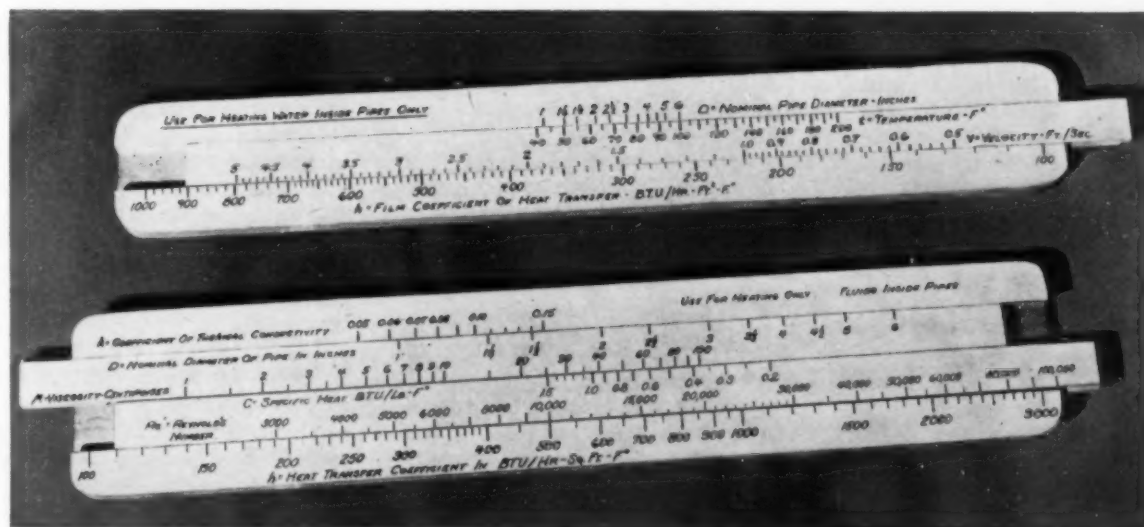 USE FOR HEATING WATER INSIDE PIPES ONLY
1 1¼ 1½ 2 2½ 3 4 5 6 D = NOMINAL PIPE DIAMETER - INCHES
40 50 60 70 80 90 100 120 140 160 180 200 t = TEMPERATURE - F°
5 4.5 4 3.5 3 2.5 2 1.5 1.0 0.9 0.8 0.7 0.6 0.5 V = VELOCITY - FT./SEC
1000 900 800 700 600 500 400 300 250 200 150 100
h = FILM COEFFICIENT OF HEAT TRANSFER - BTU/HR-FT²-F°
USE FOR HEATING ONLY FLUID INSIDE PIPES
k = COEFFICIENT OF THERMAL CONDUCTIVITY 0.05 0.06 0.07 0.08 0.10 0.15
D = NOMINAL DIAMETER OF PIPE IN INCHES 1" 1¼ 1½ 2 2½ 3 3½ 4 4½ 5 6
μ = VISCOSITY - CENTIPOISES 1 2 3 4 5 6 7 8 9 10 20 30 40 60 80 100
C = SPECIFIC HEAT BTU/LB-F° 1.5 1.0 0.8 0.6 0.4 0.3 0.2
REYNOLD'S NUMBER 3000 4000 5000 6000 8000 10,000 15,000 20,000 30,000 40,000 50,000 60,000 100,000
100 150 200 250 300 400 500 600 700 800 900 1000 1500 2000 3000
h = HEAT TRANSFER COEFFICIENT IN BTU/HR-SQ.FT-F°